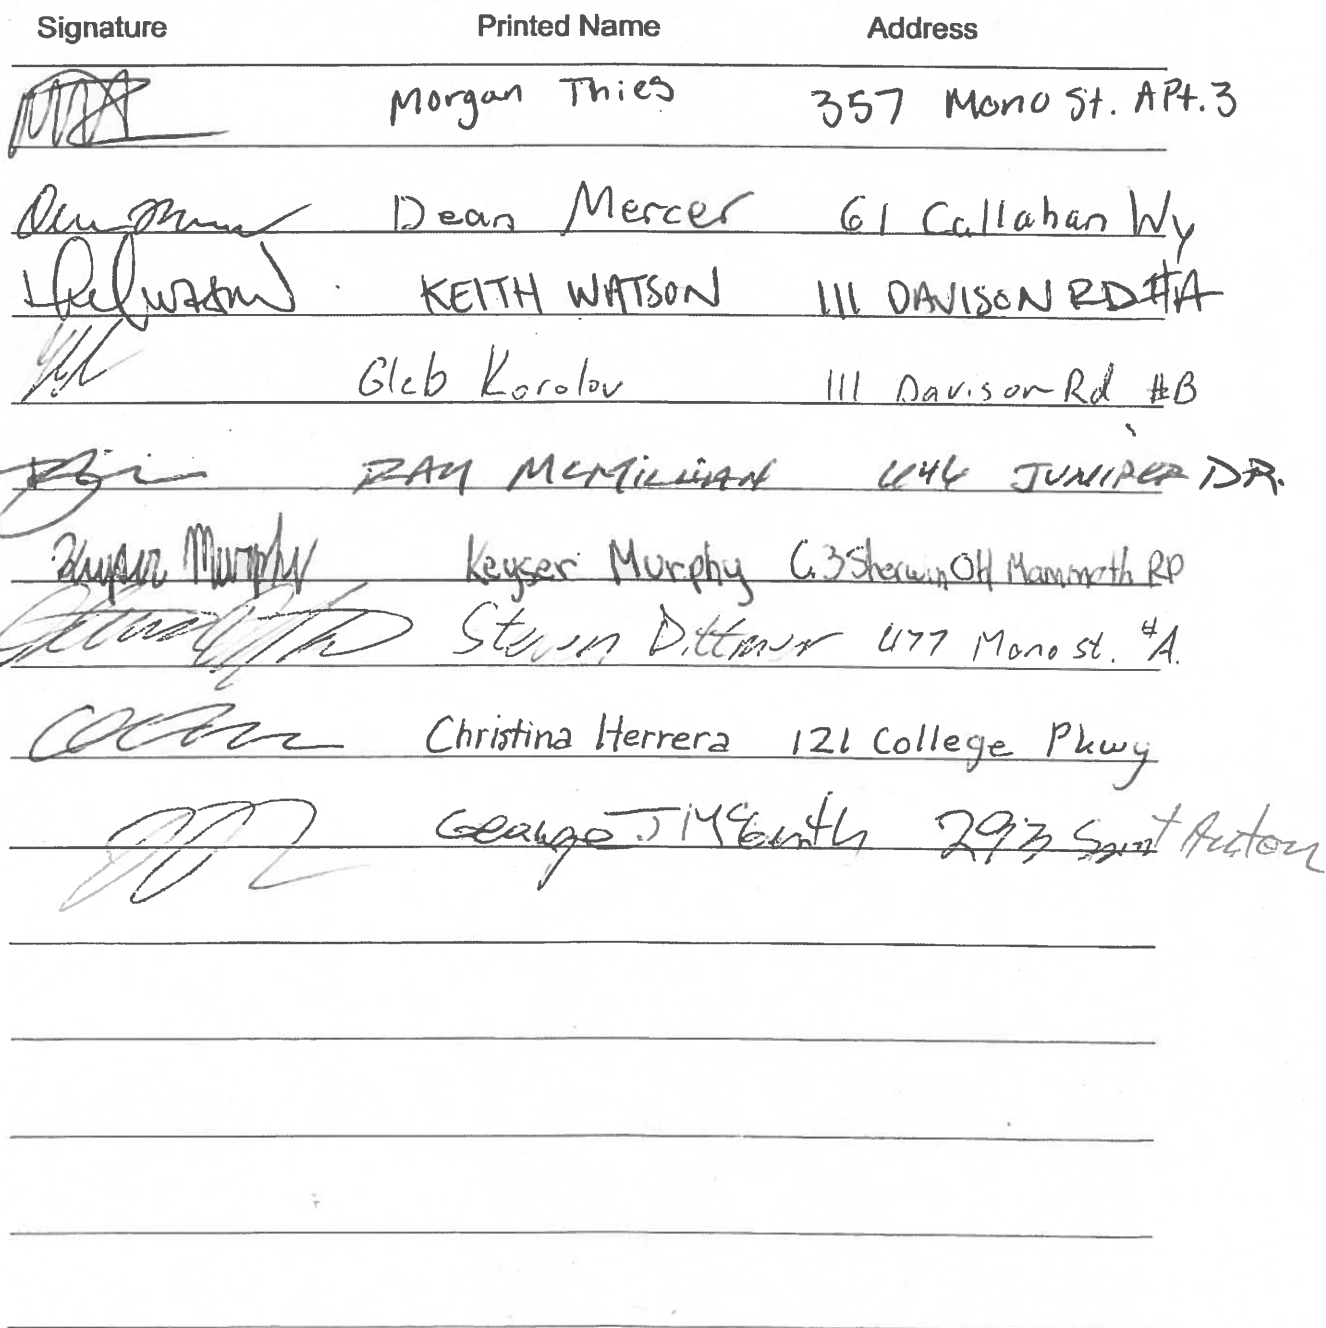 Signature Printed Name Address
Morgan Thies 357 Mono St. APt. 3
Dean Mercer 61 Callahan Wy
KEITH WATSON 111 DAVISON RD #A
Gleb Korolov 111 Davison Rd #B
RAY MCMILLIAN 446 JUNIPER DR.
Keyser Murphy Mammoth
Steven Dittmer 477 Mono st. #A.
Christina Herrera 121 College Pkwy
George J 293